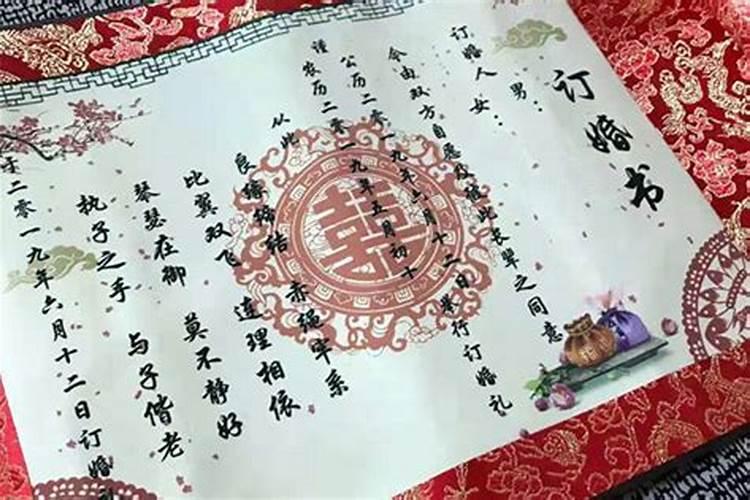 订婚书
订婚人 男：
女：
今由双方自愿及彼此长辈之同意
公历二零一九年六月十二日举行订婚礼
谨农历二零一九年五月初十
从此
良缘缔结 赤绳牢系
比翼双飞 连理相依
琴瑟在御 莫不静好
执子之手 与子偕老
于二零一九年六月十二日订婚